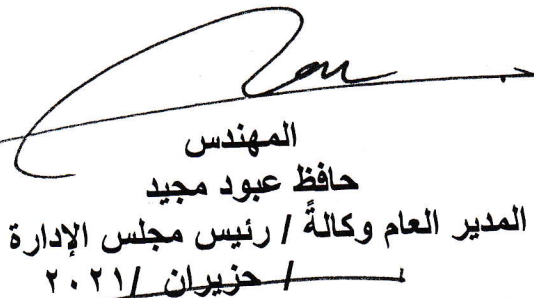 المهندس
حافظ عبود مجيد
المدير العام وكالةً / رئيس مجلس الإدارة
/ حزيران /٢٠٢١